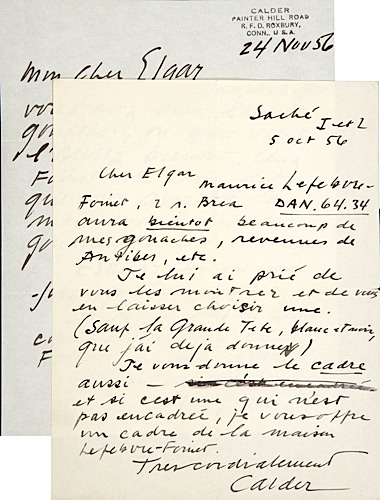 CALDER
PAINTER HILL ROAD
R. F. D. ROXBURY,
CONN., U. S. A.
24 Nov 56
Mon cher Elgar
Saché
I et L
5 oct 56
Cher Elgar
Maurice Lefebvre-
Foinet, 2 r. Brea DAN.64.34
aura bientot beaucoup de
mes gouaches, revenues de
Antibes, etc.
Je lui ai prié de
vous les montrer et de vous
en laisser choisir une.
(Sauf la Grande Tete, blanc et noir,
que j'ai deja donné)
Je vous donne le cadre
aussi —
et si c'est une qui n'est
pas encadrée, je vous offre
un cadre de la maison
Lefebvre-Foinet.
Tres cordialement
Calder